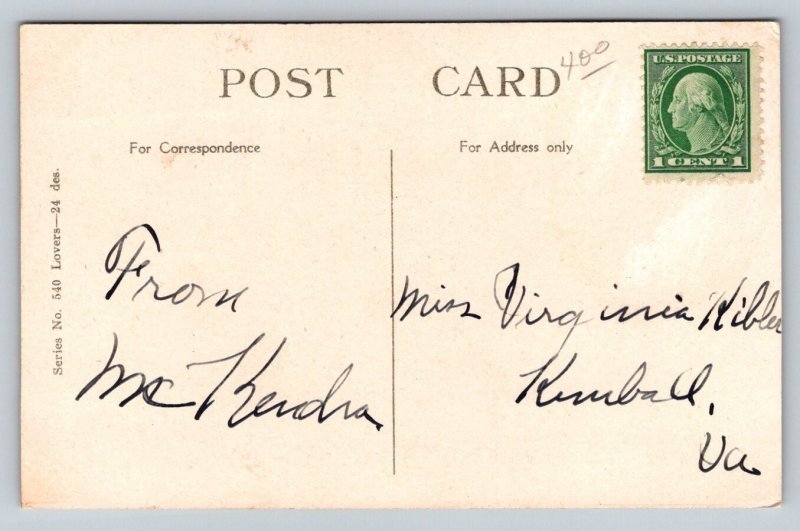 POST CARD
400
U.S. POSTAGE
1 CENT 1
For Correspondence
For Address only
Series No. 540 Lovers—24 des.
From
McKendra
Miss Virginia Kibler
Kimball,
Va